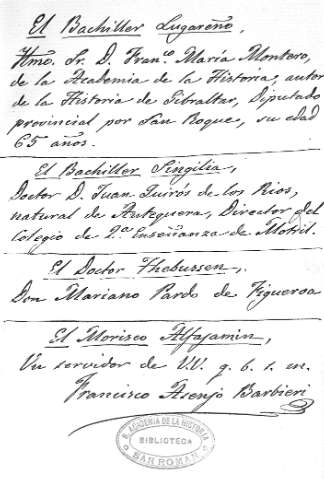 El Bachiller Lugareño,
Ilmo. Sr. D. Fran.co María Montero,
de la Academia de la Historia, autor
de la Historia de Gibraltar, Diputado
provincial por San Roque, su edad
65 años.
El Bachiller Singilia,
Doctor D. Juan Quirós de los Rios,
natural de Antequera, Director del
Colegio de 2.a Enseñanza de Motril.
El Doctor Thebussen,
Don Mariano Pardo de Figueroa
El Morisco Alfajamin,
Un servidor de V.V. q. b. s. m.
Francisco Asenjo Barbieri
R. ACADEMIA DE LA HISTORIA
BIBLIOTECA
SAN ROMAN